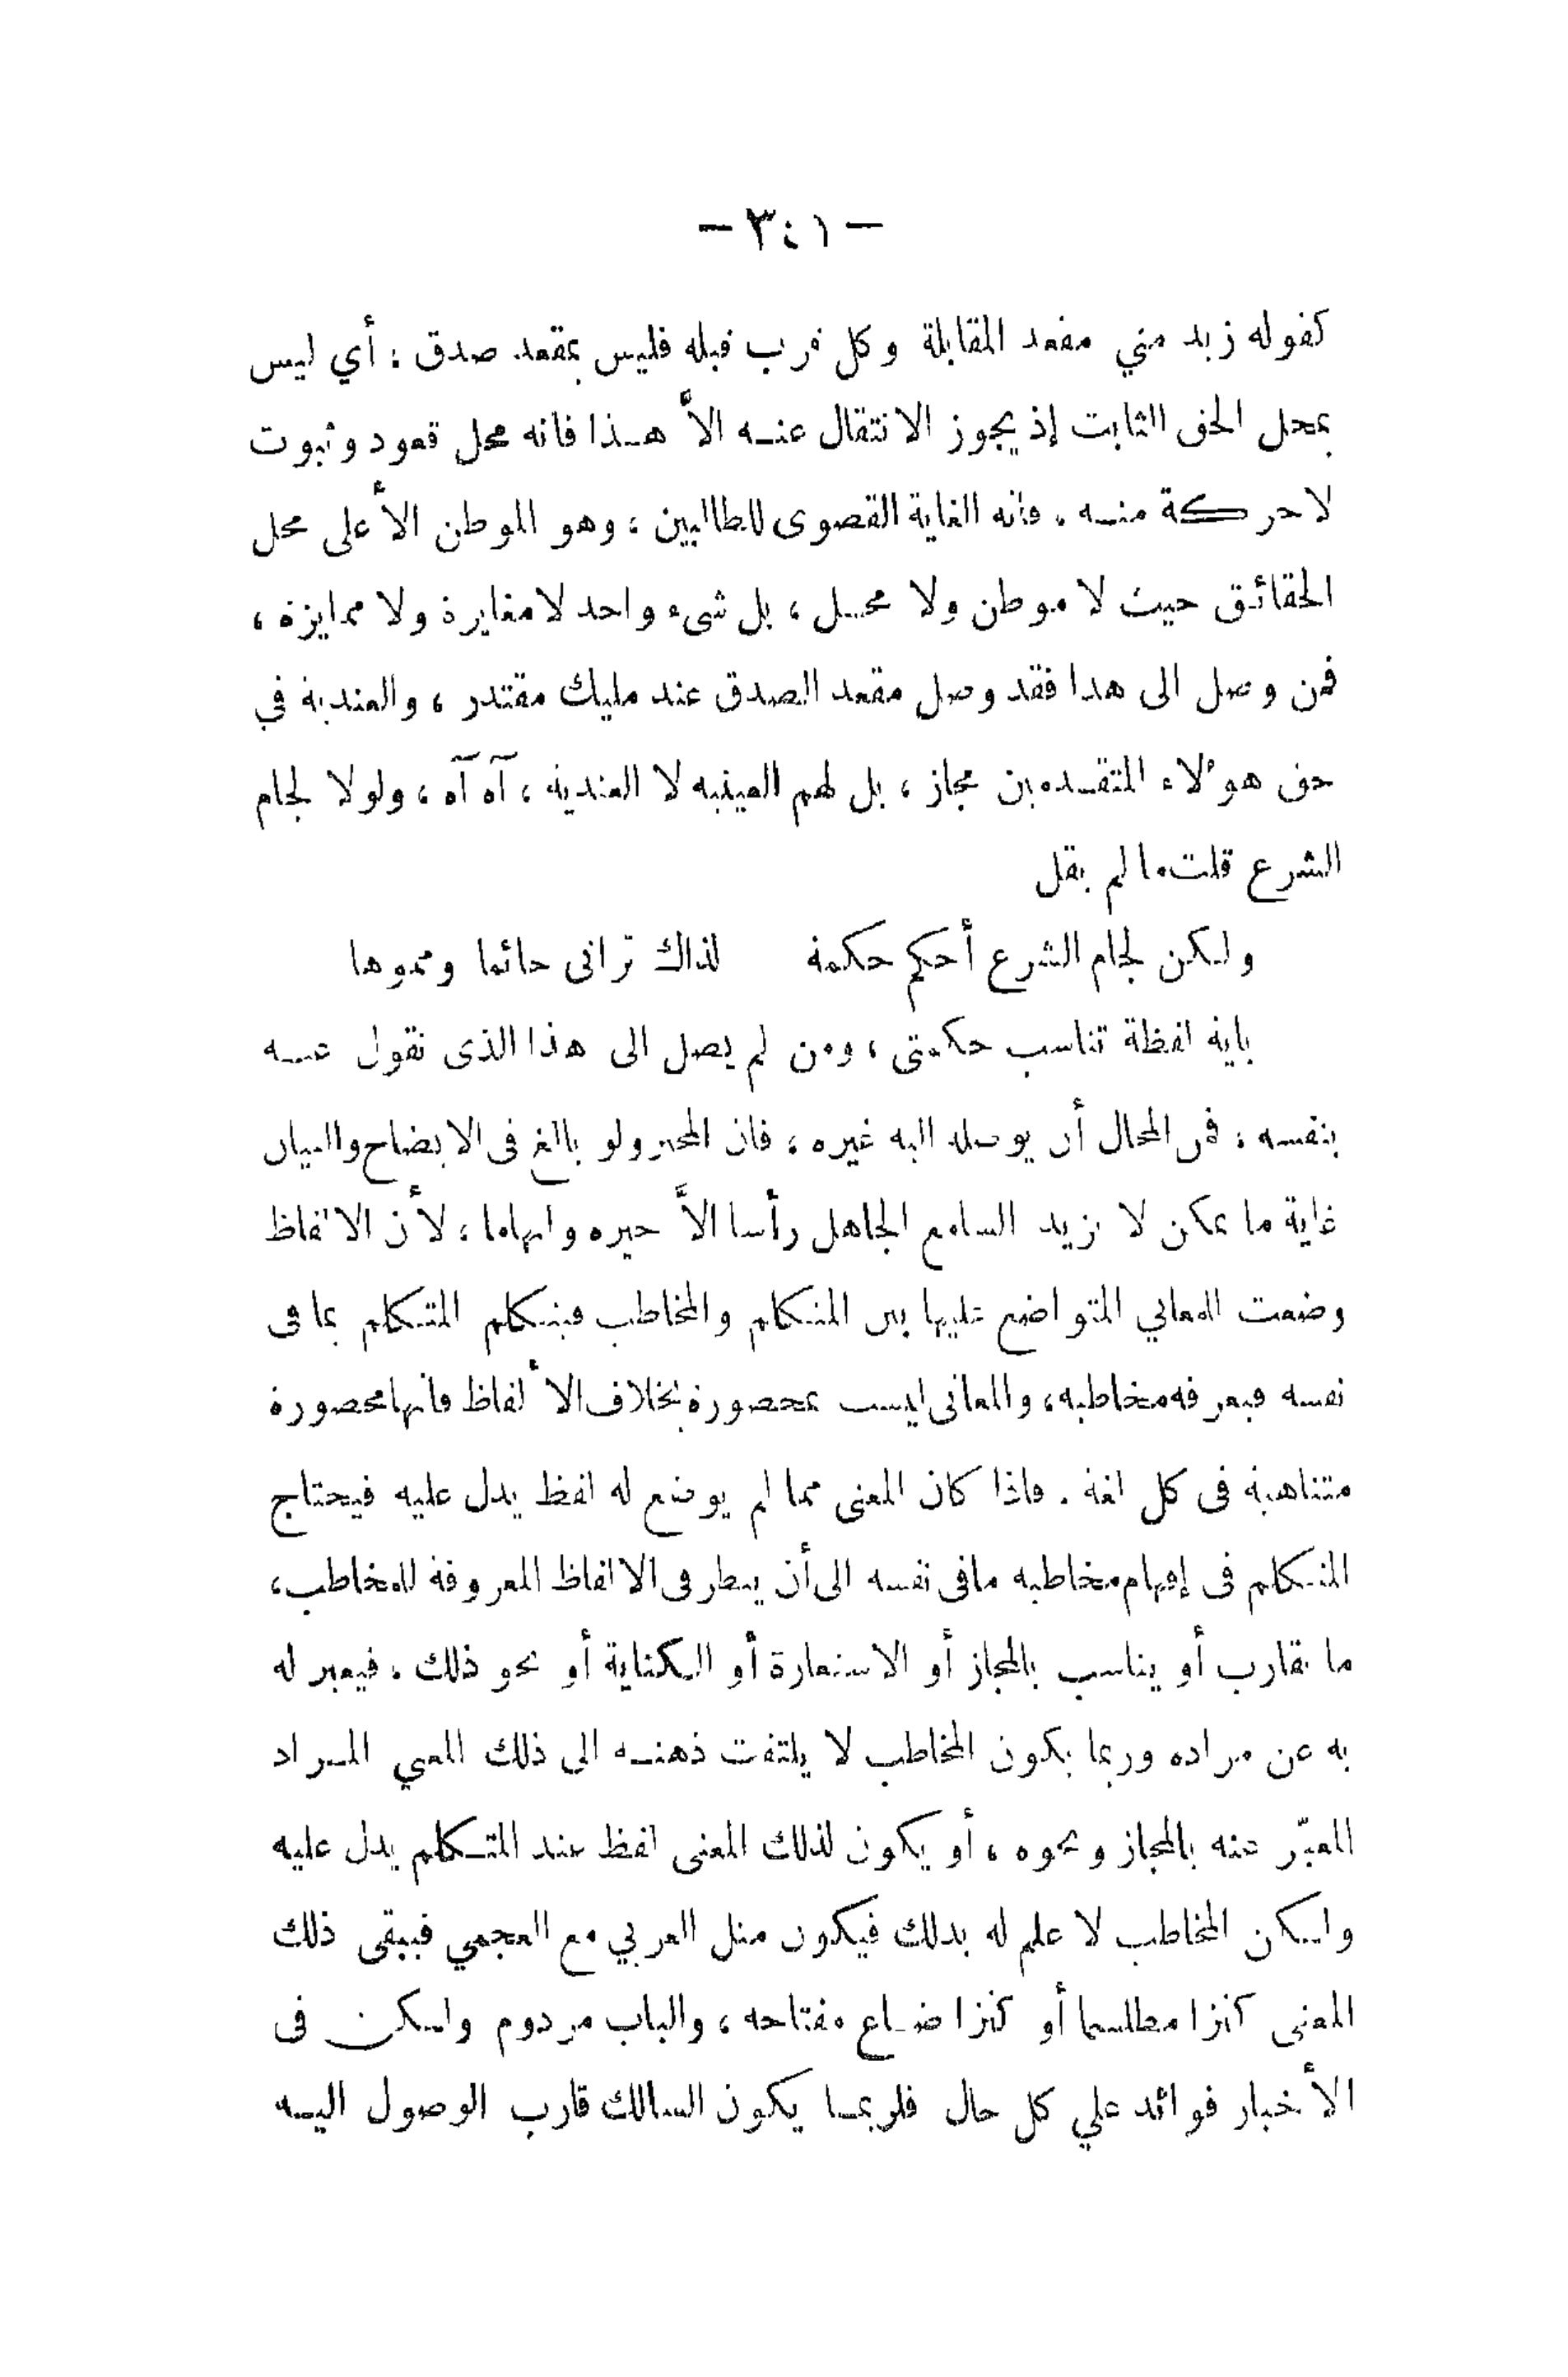 — ٣٤١ —
كقوله زيد مني مقعد المقابلة وكل قرب قبله فليس بمقعد صدق ، أي ليس
بمحل الحق الثابت إذ يجوز الانتقال عنـه الاَّ هـذا فانه محل قعود وثبوت
لا حركة منـه ، فانه الغاية القصوى للطالبين ، وهو الموطن الأعلى محل
الحقائق حيث لا موطن ولا محـل ، بل شيء واحد لا مغايرة ولا ممايزة ،
فمن وصل الى هذا فقد وصل مقعد الصدق عند مليك مقتدر ، والعندية في
حق هؤلاء المتقـدمين مجاز ، بل لهم العينية لا العندية ، آه آه ، ولولا لجام
الشرع قلت ما لم يقل
ولـكن لجام الشرع أحكم حكمة لذاك تراني حائما ومموها
باية لفظة تناسب حكمتى ، ومن لم يصل الى هذا الذى نقول عنـه
بنفسه ، فمن المحال أن يوصله اليه غيره ، فان المخبر ولو بالغ فى الايضاح والبيان
غاية ما يمكن لا يزيد السامع الجاهل رأسا الاَّ حيرة وابهاما ، لأن الالفاظ
وضعت للمعاني المتواضع عليها بين المتكلم والمخاطب فيتكلم المتـكلم بما فى
نفسه فيعرفه مخاطبه ، والمعانى ليست بمحصورة بخلاف الألفاظ فانها محصورة
متناهية فى كل لغة . فاذا كان المعنى مما لم يوضع له لفظ يدل عليه فيحتاج
المتـكلم فى إفهام مخاطبه ما فى نفسه الى أن ينظر فى الالفاظ المعروفة للمخاطب ،
ما يقارب أو يناسب بالمجاز أو الاستعارة أو الـكناية أو نحو ذلك ، فيعبر له
به عن مراده وربما يكون المخاطب لا يلتفت ذهنـه الى ذلك المعني المـراد
المعبّر عنه بالمجاز ونحوه ، أو يكون لذلك المعنى لفظ عند المتـكلم يدل عليه
ولـكن المخاطب لا علم له بذلك فيكون مثل العربي مع العجمي فيبقى ذلك
المعنى كنزا مطلسما أو كنزا ضـاع مفتاحه ، والباب مردوم ولـكن فى
الأخبار فوائد علي كل حال فلربمـا يكون السالك قارب الوصول اليـه